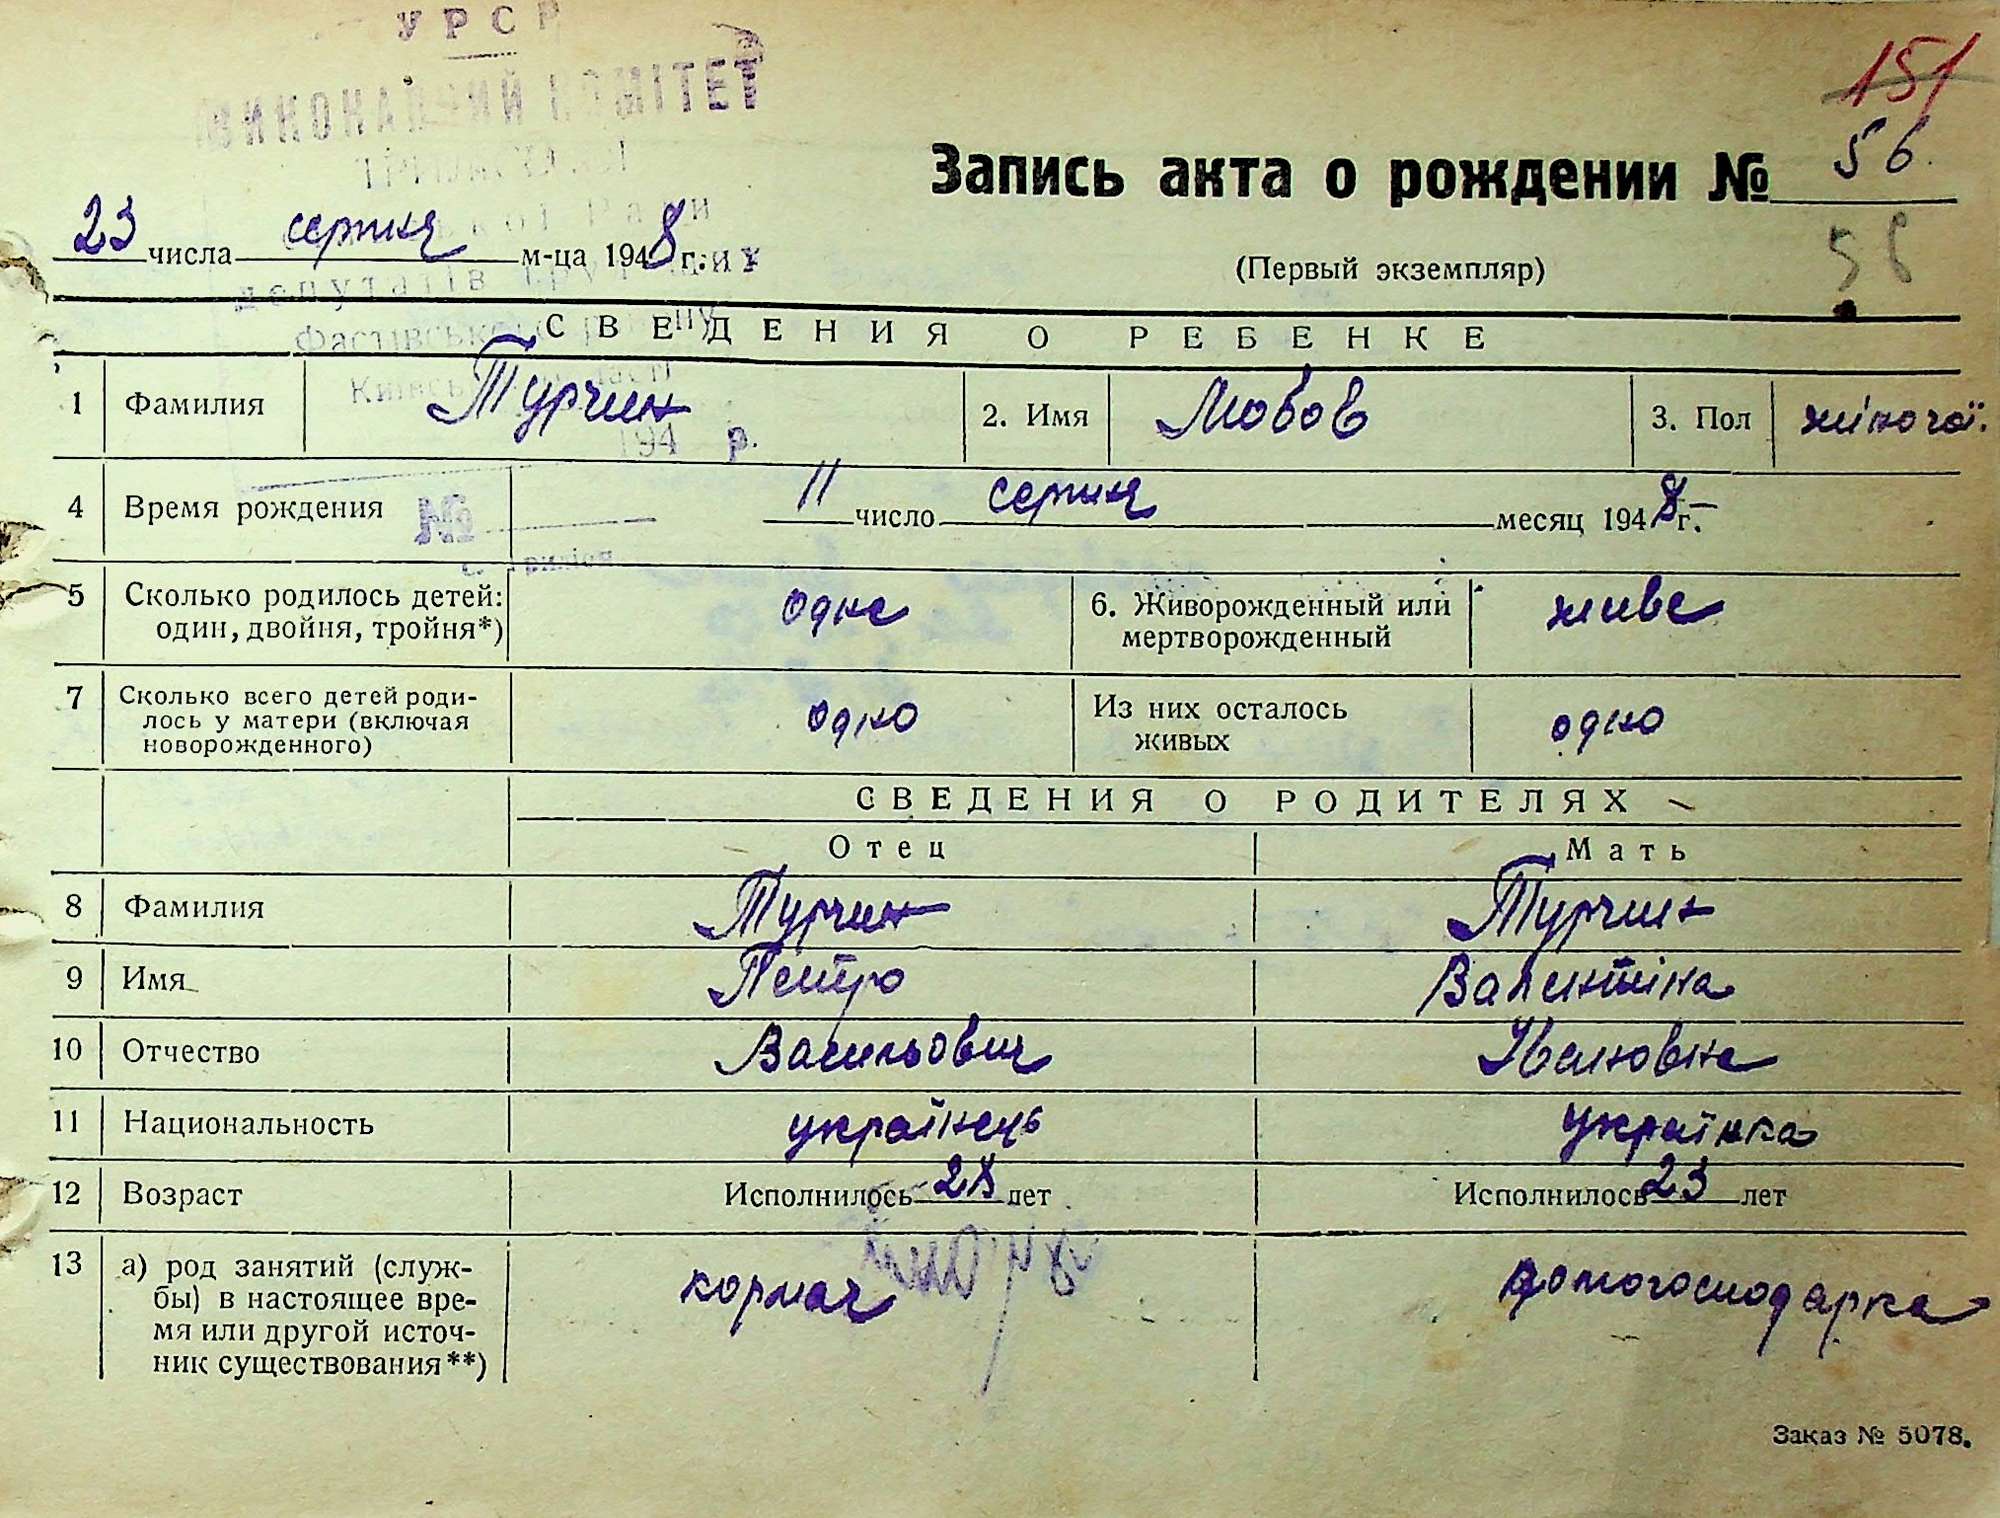 УРСР
ВИКОНАВЧИЙ КОМІТЕТ
Ради
депутатів
Фастівського району
194 р.
№
151
Запись акта о рождении № 56.
23 числа серпня м-ца 1948 г.
(Первый экземпляр)
56
СВЕДЕНИЯ О РЕБЕНКЕ
1 Фамилия Турчин 2. Имя Любов 3. Пол жіночої.
4 Время рождения 11 число серпня месяц 1948 г.
5 Сколько родилось детей: один, двойня, тройня*) одне 6. Живорожденный или мертворожденный живе
7 Сколько всего детей роди-
лось у матери (включая
новорожденного) одно Из них осталось живых одно
СВЕДЕНИЯ О РОДИТЕЛЯХ
Отец Мать
8 Фамилия Турчин Турчин
9 Имя Петро Валентіна
10 Отчество Васильович Івановна
11 Национальность українець українка
12 Возраст Исполнилось 28 лет Исполнилось 23 лет
13 а) род занятий (служ-
бы) в настоящее вре-
мя или другой источ-
ник существования**) кормач домогосподарка
Заказ № 5078.